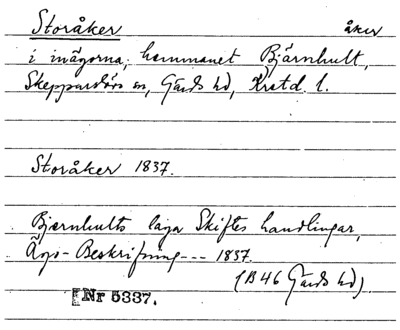 Storåker åker
i inägorna, hemmanet Bjärnhult,
Skepparslövs sn, Gärds hd, Krstd. l.
Storåker 1837.
Bjernhults laga Skiftes handlingar,
Ägo-Beskrifning --- 1837.
(B 46 Gärds hd)
[Nr 5337.